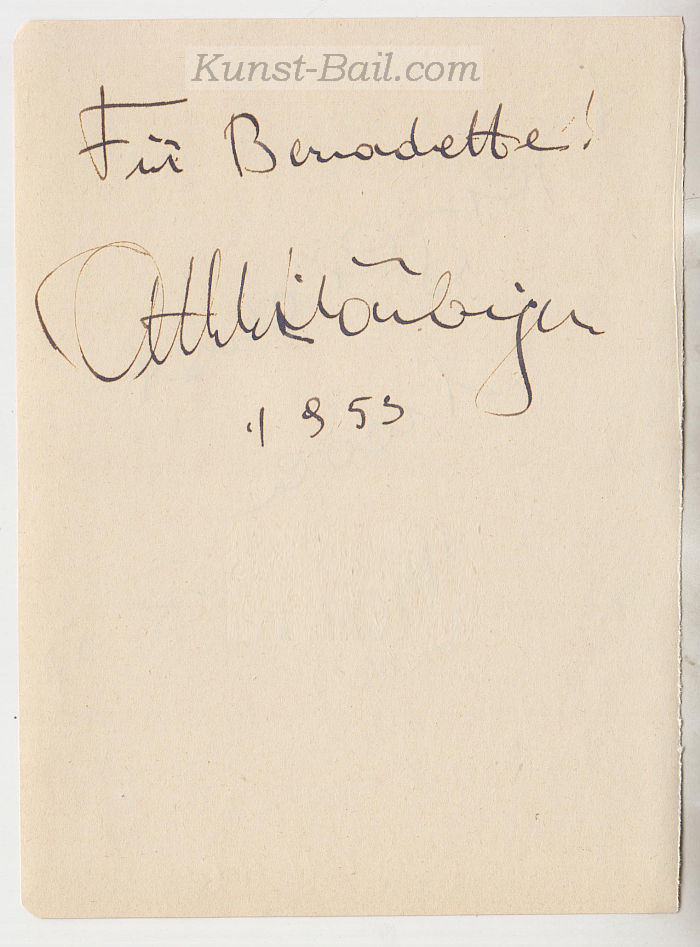 Kunst-Bail.com
Für Bernadette!
Attila Hörbiger
1953